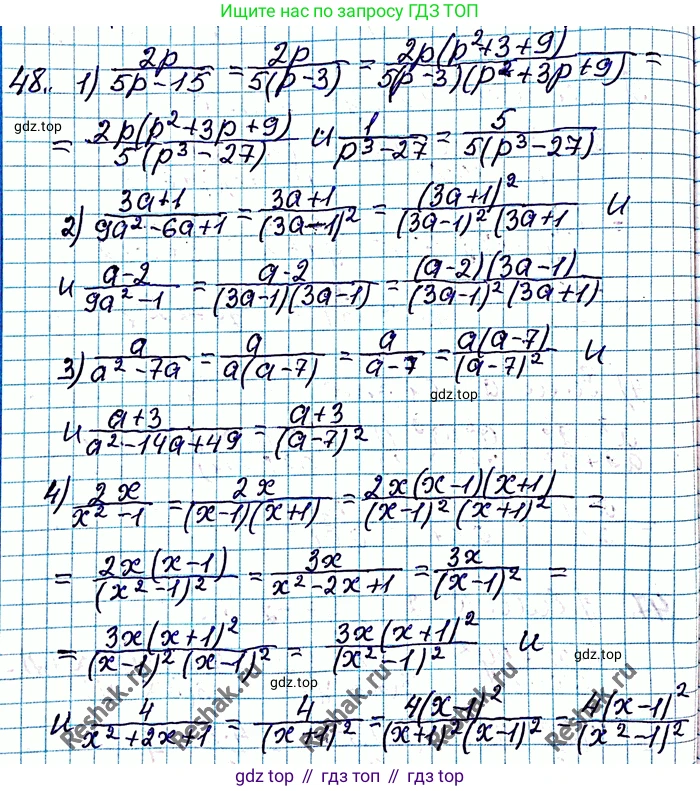 Ищите нас по запросу ГДЗ ТОП
48. 1) 2p/(5p-15) = 2p/(5(p-3)) = 2p(p²+3+9)/(5(p-3)(p²+3p+9)) =
= 2p(p²+3p+9)/(5(p³-27)) и 1/(p³-27) = 5/(5(p³-27))
gdz.top
2) (3a+1)/(9a²-6a+1) = (3a+1)/(3a-1)² = (3a+1)²/((3a-1)²(3a+1 и
и (a-2)/(9a²-1) = (a-2)/((3a-1)(3a-1)) = (a-2)(3a-1)/((3a-1)²(3a+1)
3) a/(a²-7a) = a/(a(a-7)) = a/(a-7) = a(a-7)/(a-7)² и
gdz.top
и (a+3)/(a²-14a+49) = (a+3)/(a-7)²
4) 2x/(x²-1) = 2x/((x-1)(x+1)) = 2x(x-1)(x+1)/((x-1)²(x+1)²) =
= 2x(x-1)/(x²-1)² = 3x/(x²-2x+1) = 3x/(x-1)² =
= 3x(x+1)²/((x-1)²(x-1)²) = 3x(x+1)²/(x²-1)² и
gdz.top
и 4/(x²+2x+1) = 4/(x+1)² = 4(x-1)²/((x+1)²(x-1)²) = 4(x-1)²/(x²-1)²
Reshak.ru
Reshak.ru
Reshak.ru
Reshak.ru
gdz top // гдз топ // gdz.top